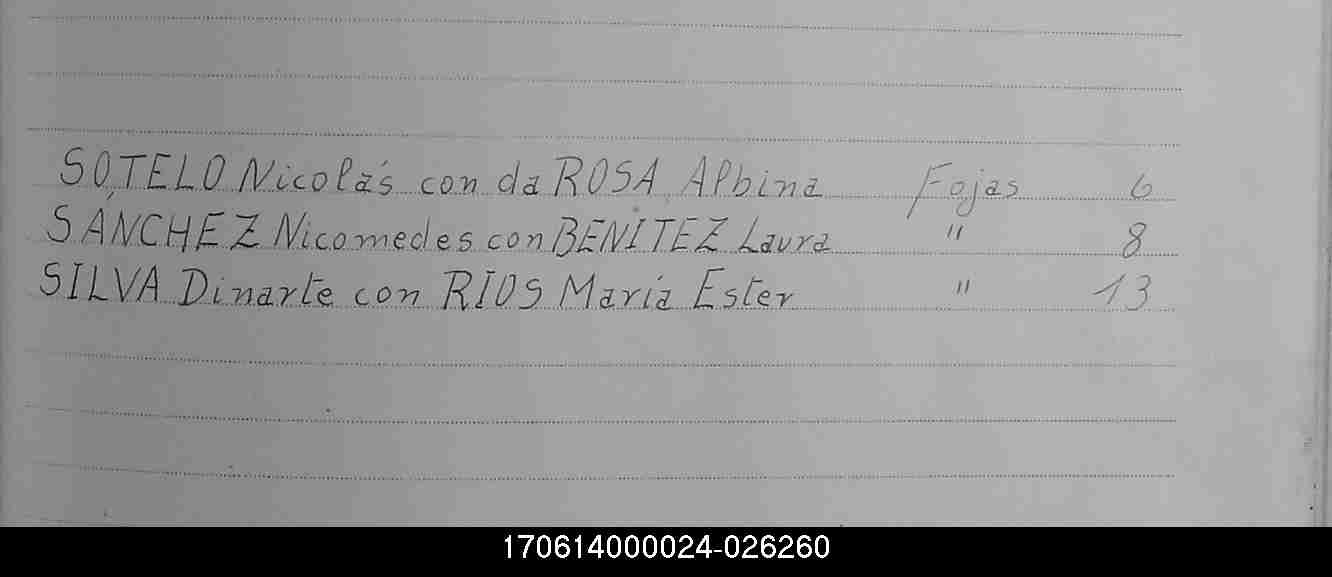 SOTELO Nicolás con da ROSA Albina Fojas 6
SÁNCHEZ Nicomedes con BENÍTEZ Laura " 8
SILVA Dinarte con RÍOS María Ester " 13
170614000024-026260